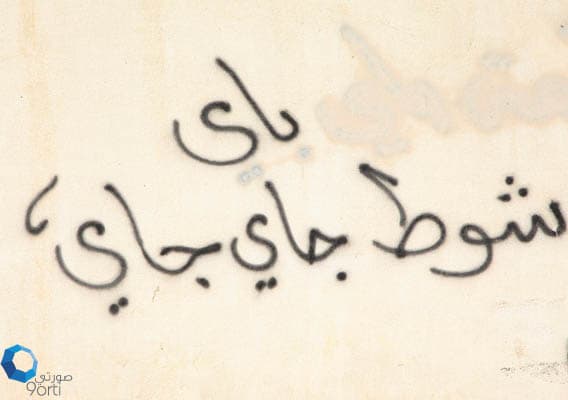 باي
شوط جاي جاي،
صورتي
9orti